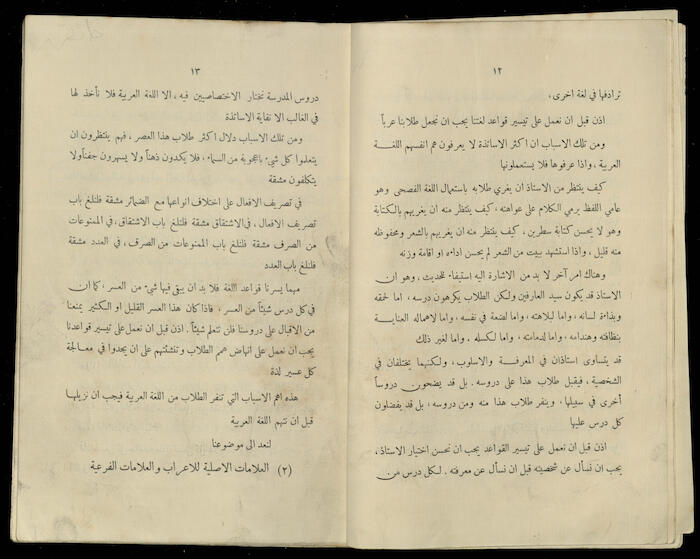 ١٢
ترادفها في لغة اخرى.
اذن قبل ان نعمل على تيسير قواعد لغتنا يجب ان نجعل طلابنا عرباً
ومن تلك الاسباب ان اكثر الاساتذة لا يعرفون هم انفسهم اللغة
العربية، واذا عرفوها فلا يستعملونها
كيف ينتظر من الاستاذ ان يغري طلابه باستعمال اللغة الفصحى وهو
عامي اللفظ يرمي الكلام على عواهنه، كيف ينتظر منه ان يغريهم بالكتابة
وهو لا يحسن كتابة سطرين، كيف ينتظر منه ان يغريهم بالشعر ومحفوظه
منه قليل، واذا استشهد ببيت من الشعر لم يحسن اداءه او اقامة وزنه
وهناك امر آخر لا بد من الاشارة اليه استيفاء للحديث، وهو ان
الاستاذ قد يكون سيد العارفين ولكن الطلاب يكرهون درسه، اما لحقه
وبذاءة لسانه، واما لبلاهته، واما لضعة في نفسه، واما لاهماله العناية
بنظافته وهندامه، واما لدمامته، واما لكسله، واما لغير ذلك
قد يتساوى استاذان في المعرفة والاسلوب، ولكنهما يختلفان في
الشخصية، فيقبل طلاب هذا على دروسه، بل قد يضحون دروساً
أخرى في سبيلها، وينفر طلاب هذا منه ومن دروسه، بل قد يفضلون
كل درس عليها
اذن قبل ان نعمل على تيسير القواعد يجب ان نحسن اختيار الاستاذ،
يجب ان نسأل عن شخصيته قبل ان نسأل عن معرفته. لكل درس من
١٣
دروس المدرسة نختار الاختصاصيين فيه، الا اللغة العربية فلا نأخذ لها
في الغالب الا نفاية الاساتذة
ومن تلك الاسباب دلال اكثر طلاب هذا العصر، فهم ينتظرون ان
يتعلموا كل شيء باعجوبة من السماء، فلا يكدون ذهناً ولا يسهرون جفناً ولا
يتكلفون مشقة
في تصريف الافعال على اختلاف انواعها مع الضمائر مشقة فلنلغ باب
تصريف الافعال، في الاشتقاق مشقة فلنلغ باب الاشتقاق، في الممنوعات
من الصرف مشقة فلنلغ باب الممنوعات من الصرف، في العدد مشقة
فلنلغ باب العدد
مهما يسرنا قواعد اللغة فلا بد ان يبقى فيها شيء من العسر، كما ان
في كل درس شيئاً من العسر، فاذا كان هذا العسر القليل او الكثير يمنعنا
من الاقبال على دروسنا فلن نتعلم شيئاً. اذن قبل ان نعمل على تيسير قواعدنا
يجب ان نعمل على انهاض همم الطلاب وتنشئتهم على ان يجدوا في معالجة
كل عسير لذة
هذه اهم الاسباب التي تنفر الطلاب من اللغة العربية فيجب ان نزيلها
قبل ان نتهم اللغة العربية
لنعد الى موضوعنا
(٢) العلامات الاصلية للاعراب والعلامات الفرعية